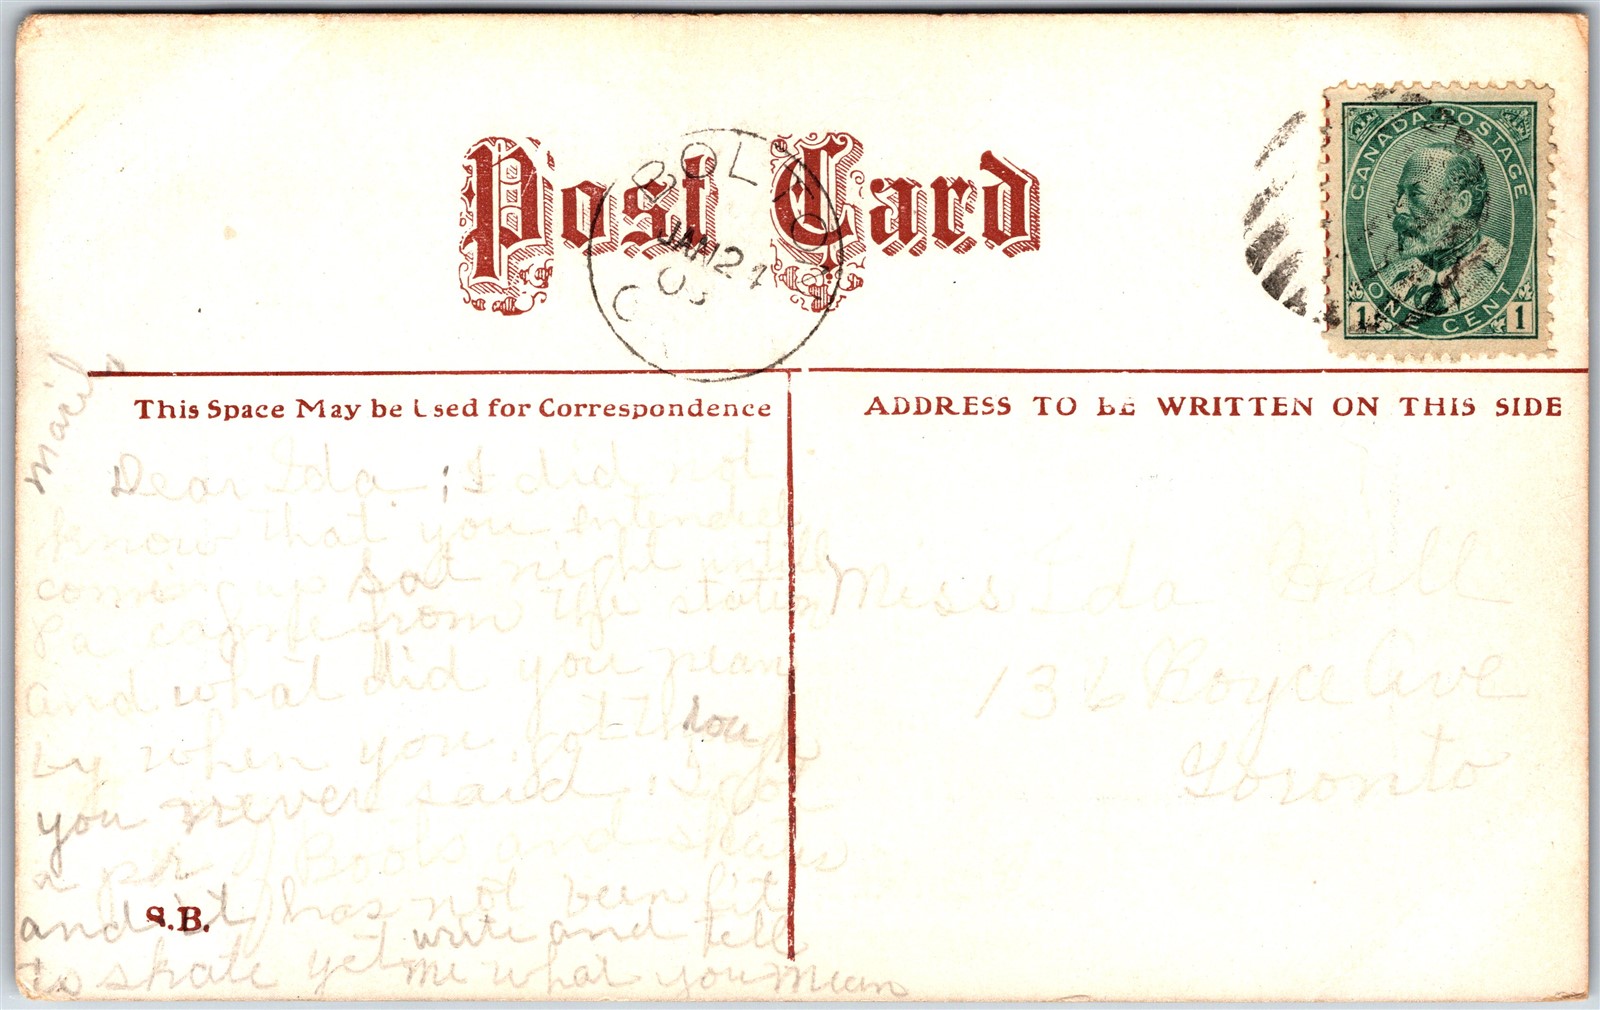 Post Card
BOLTON
JAN 21
CANADA POSTAGE
ONE CENT
1 1
This Space May be Used for Correspondence
ADDRESS TO BE WRITTEN ON THIS SIDE
Dear Ida ; I did not
know that you intended
coming up Sat night untill
Pa came from the station
and what did you mean
by when you got through
you never said. I got
a pr of Boots and skates
and it has not been fit
to skate yet write and tell
me what you mean
S.B.
Miss Ida Hall
136 Royce Ave
Toronto